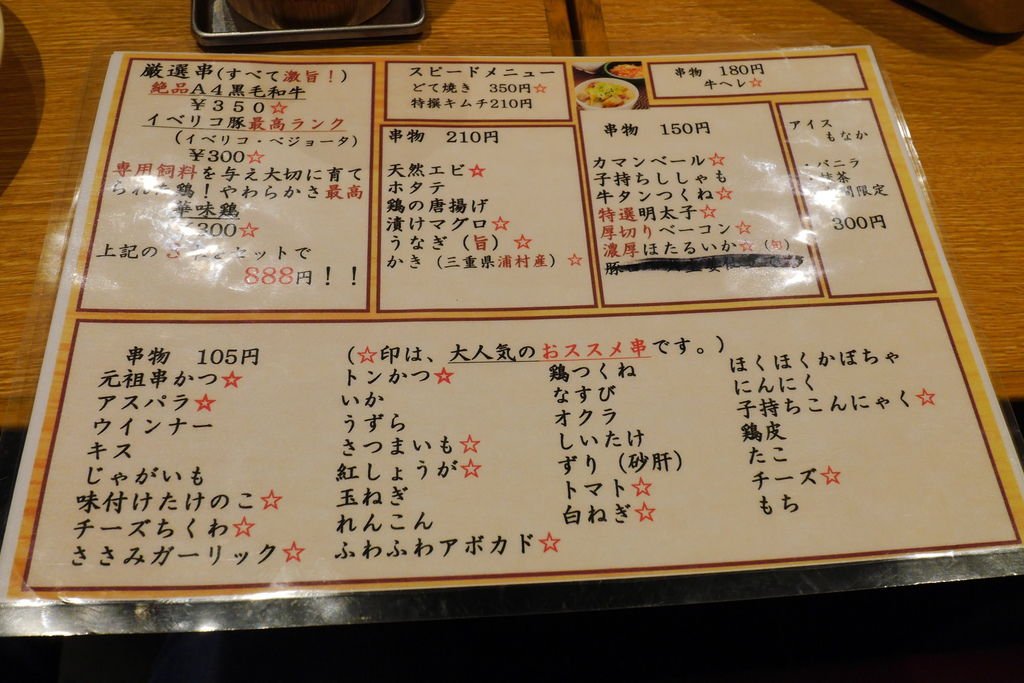 厳選串(すべて激旨！)
絶品A4黒毛和牛
￥350☆
イベリコ豚最高ランク
(イベリコ・ベジョータ)
￥300☆
専用飼料を与え大切に育て
られた鶏！やわらかさ最高
華味鶏
300☆
上記の セットで
888円！！
スピードメニュー
どて焼き 350円☆
特撰キムチ210円
串物 210円
天然エビ☆
ホタテ
鶏の唐揚げ
漬けマグロ☆
うなぎ（旨）☆
かき（三重県浦村産）☆
串物 180円
牛ヘレ☆
串物 150円
カマンベール☆
子持ちししゃも
牛タンつくね☆
特選明太子☆
厚切りベーコン☆
濃厚ほたるいか☆（旬）
アイス
もなか
・バニラ
抹茶
間限定
300円
串物 105円
（☆印は、大人気のおススメ串です。）
元祖串かつ☆
アスパラ☆
ウインナー
キス
じゃがいも
味付けたけのこ☆
チーズちくわ☆
ささみガーリック☆
トンかつ☆
いか
うずら
さつまいも☆
紅しょうが☆
玉ねぎ
れんこん
ふわふわアボカド☆
鶏つくね
なすび
オクラ
しいたけ
ずり（砂肝）
トマト☆
白ねぎ☆
ほくほくかぼちゃ
にんにく
子持ちこんにゃく☆
鶏皮
たこ
チーズ☆
もち